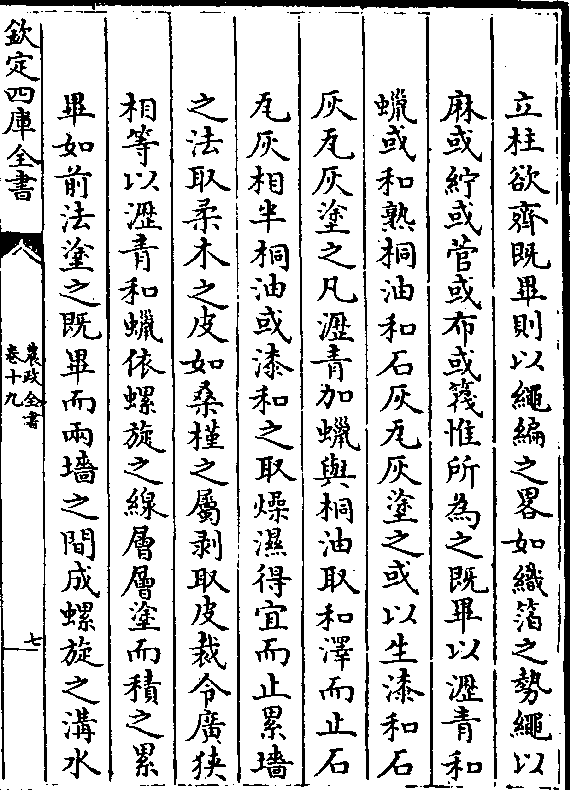 立柱欲齊既畢則以繩編之畧如織箔之勢繩以
麻或紵或菅或布或篾惟所為之既畢以瀝青和
蠟或和熟桐油和石灰瓦灰塗之或以生漆和石
灰瓦灰塗之凡瀝青加蠟與桐油取和澤而止石
瓦灰相半桐油或漆和之取燥濕得宜而止累墻
之法取柔木之皮如桑槿之屬剥取皮裁令廣狹
相等以瀝青和蠟依螺旋之線層層塗而積之累
畢如前法塗之既畢而兩墻之間成螺旋之溝水
欽定四庫全書
農政全書
卷十九
七